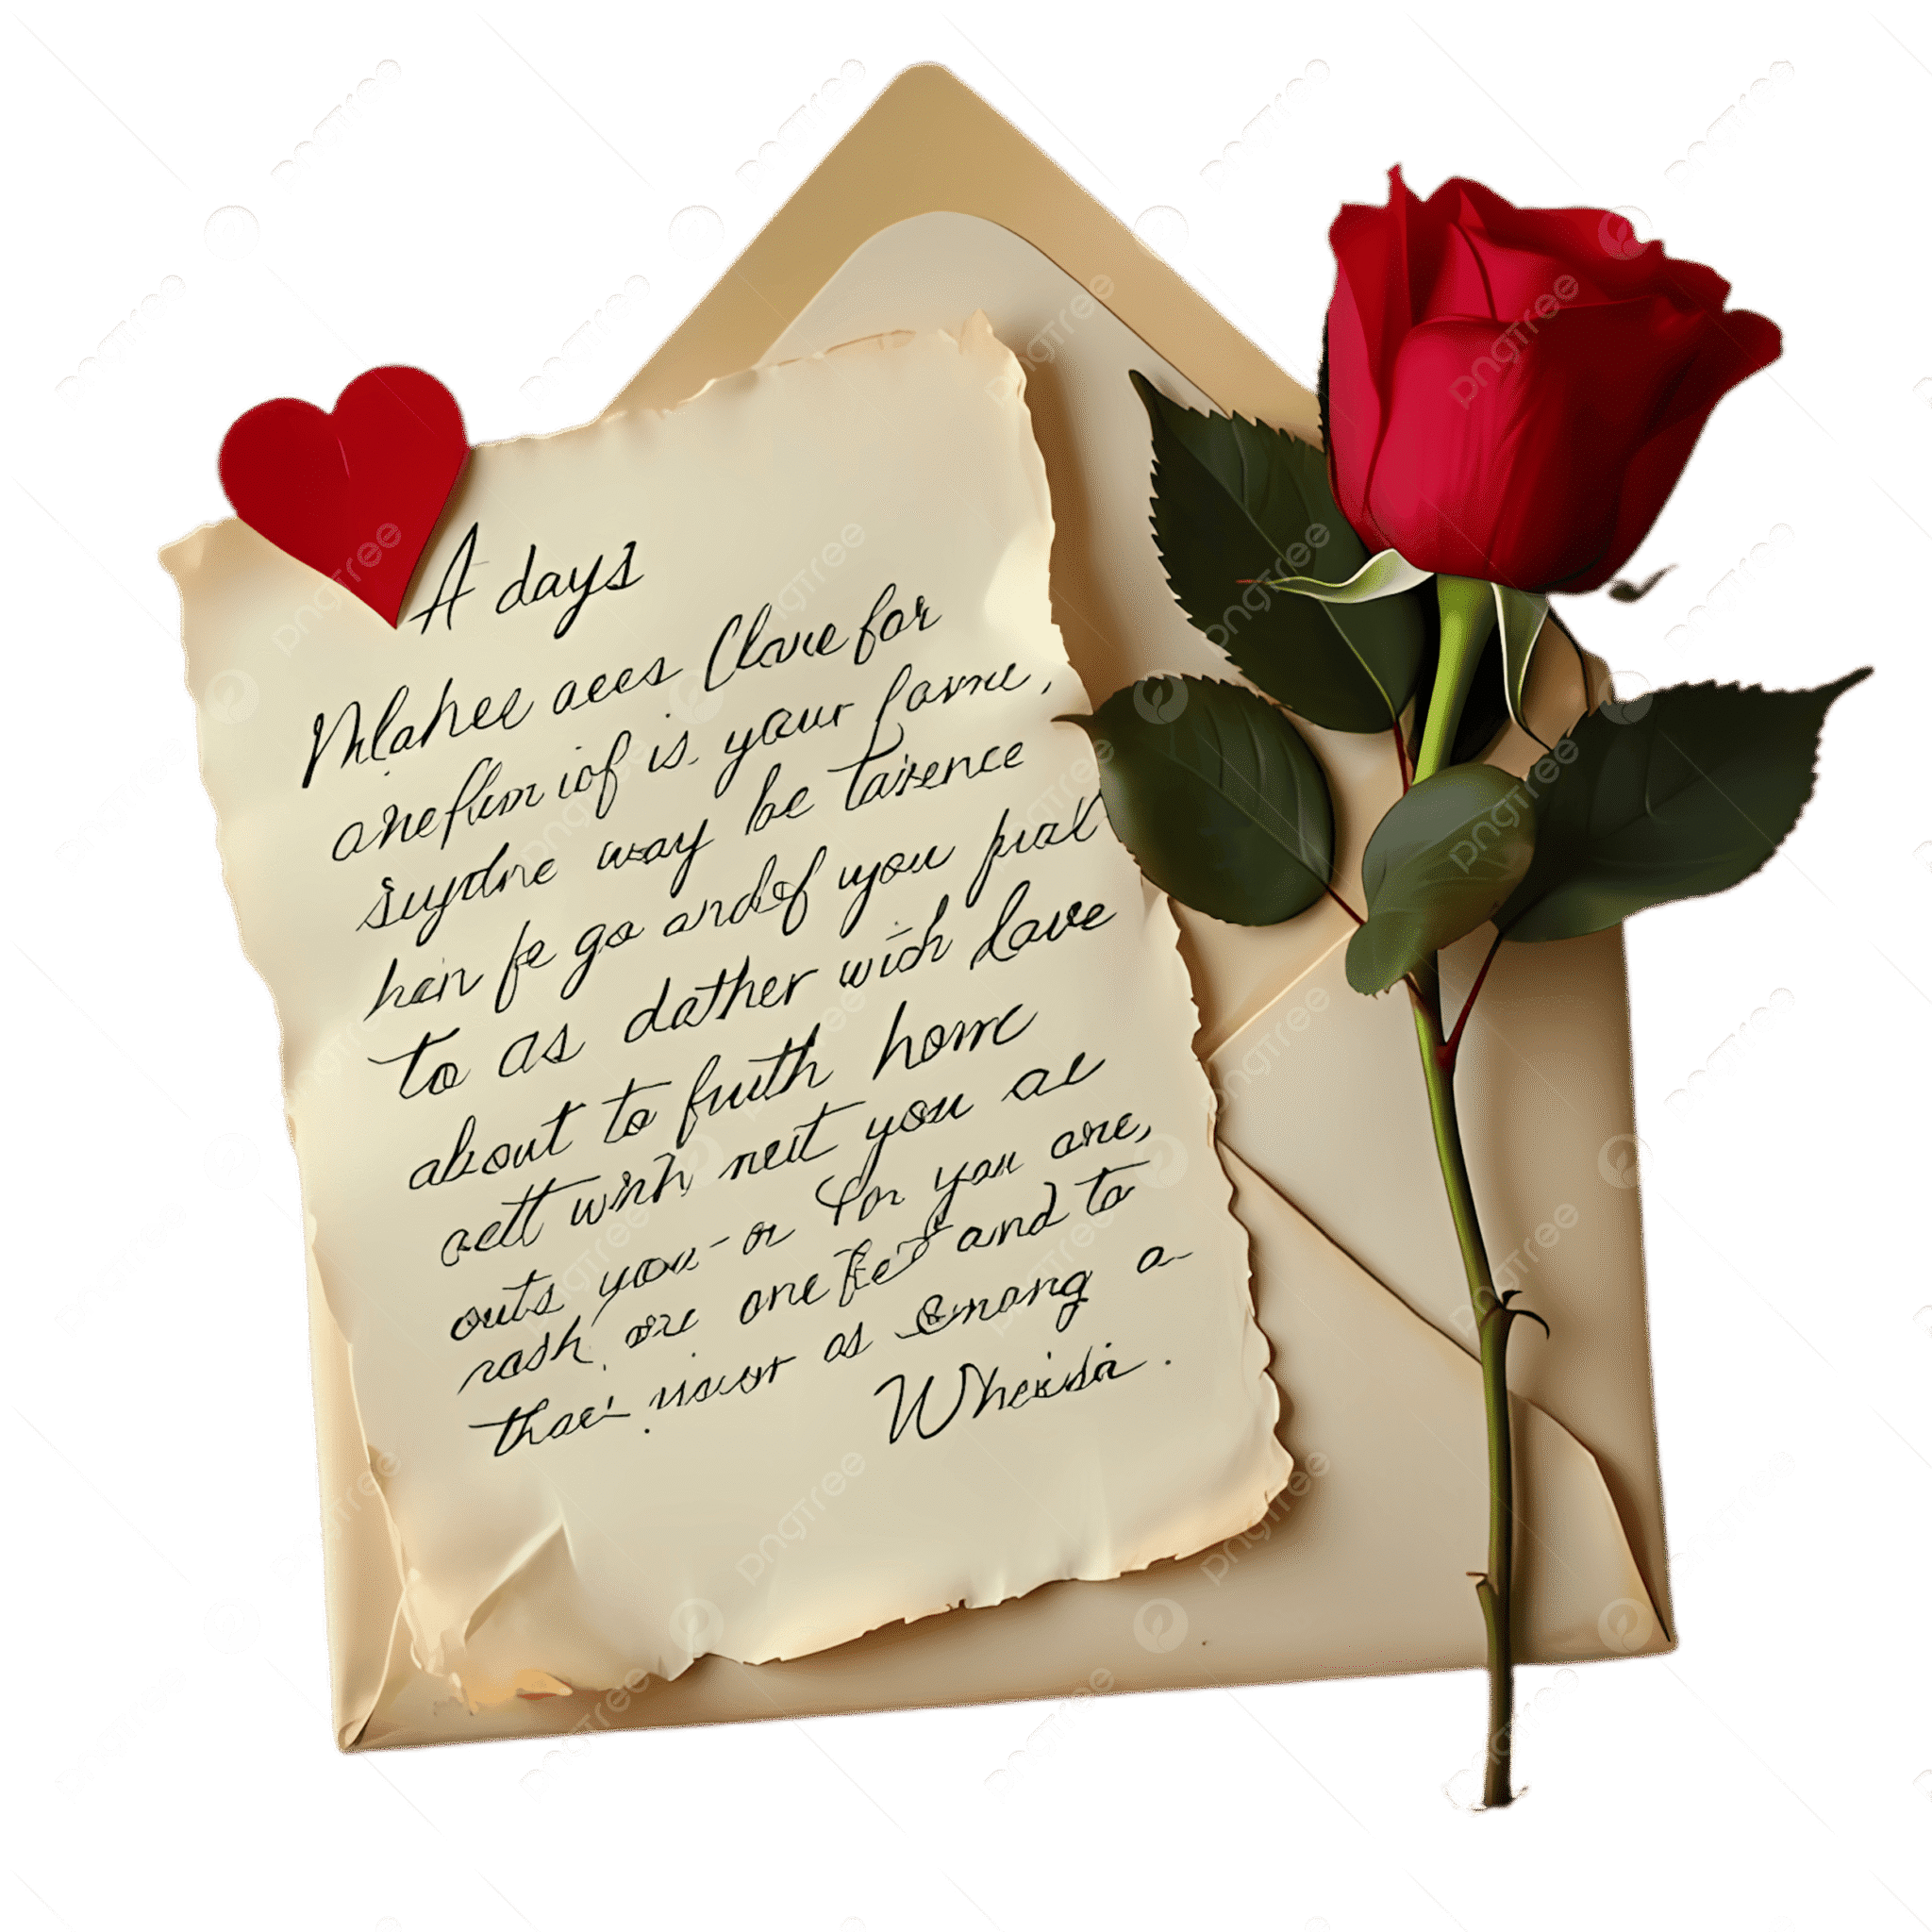 A days
Mlahee aces Clave for
anefhm iof is your favne,
suydne way be taisence
hain fe go andof you pual
to as dather wich love
about to fruth home
aett winh neit you ae
outs you-or for you are,
rash are one fet and to
thaei niavor as emong a-
Wheisdai.
pngtree